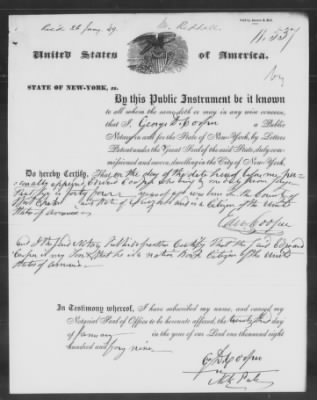 Rec'd 26 Jany 49.
No 557
United States of America.
STATE OF NEW-YORK, ss.
By this Public Instrument be it known
to all whom the same doth or may in any wise concern,
that I, George D. Cooper a Public
Notary in and for the State of New-York, by Letters
Patent under the Great Seal of the said State, duly com-
missioned and sworn, dwelling in the City of New-York.
Do hereby Certify, That on the day of the date hereof before me per-
sonally appeared Edward Cooper who being by me duly sworn
that he is forty years of age was born in the County of
West and State of and is a Citizen of the United
States of America
Edw Cooper
And I the said Notary Public do further Certify that the said Edward
Cooper is my Son & that he is a native Born Citizen of the United
States of America
In Testimony whereof, I have subscribed my name, and caused my
Notarial Seal of Office to be hereunto affixed, the twenty third day
of January in the year of our Lord one thousand eight
hundred and forty nine
G D Cooper